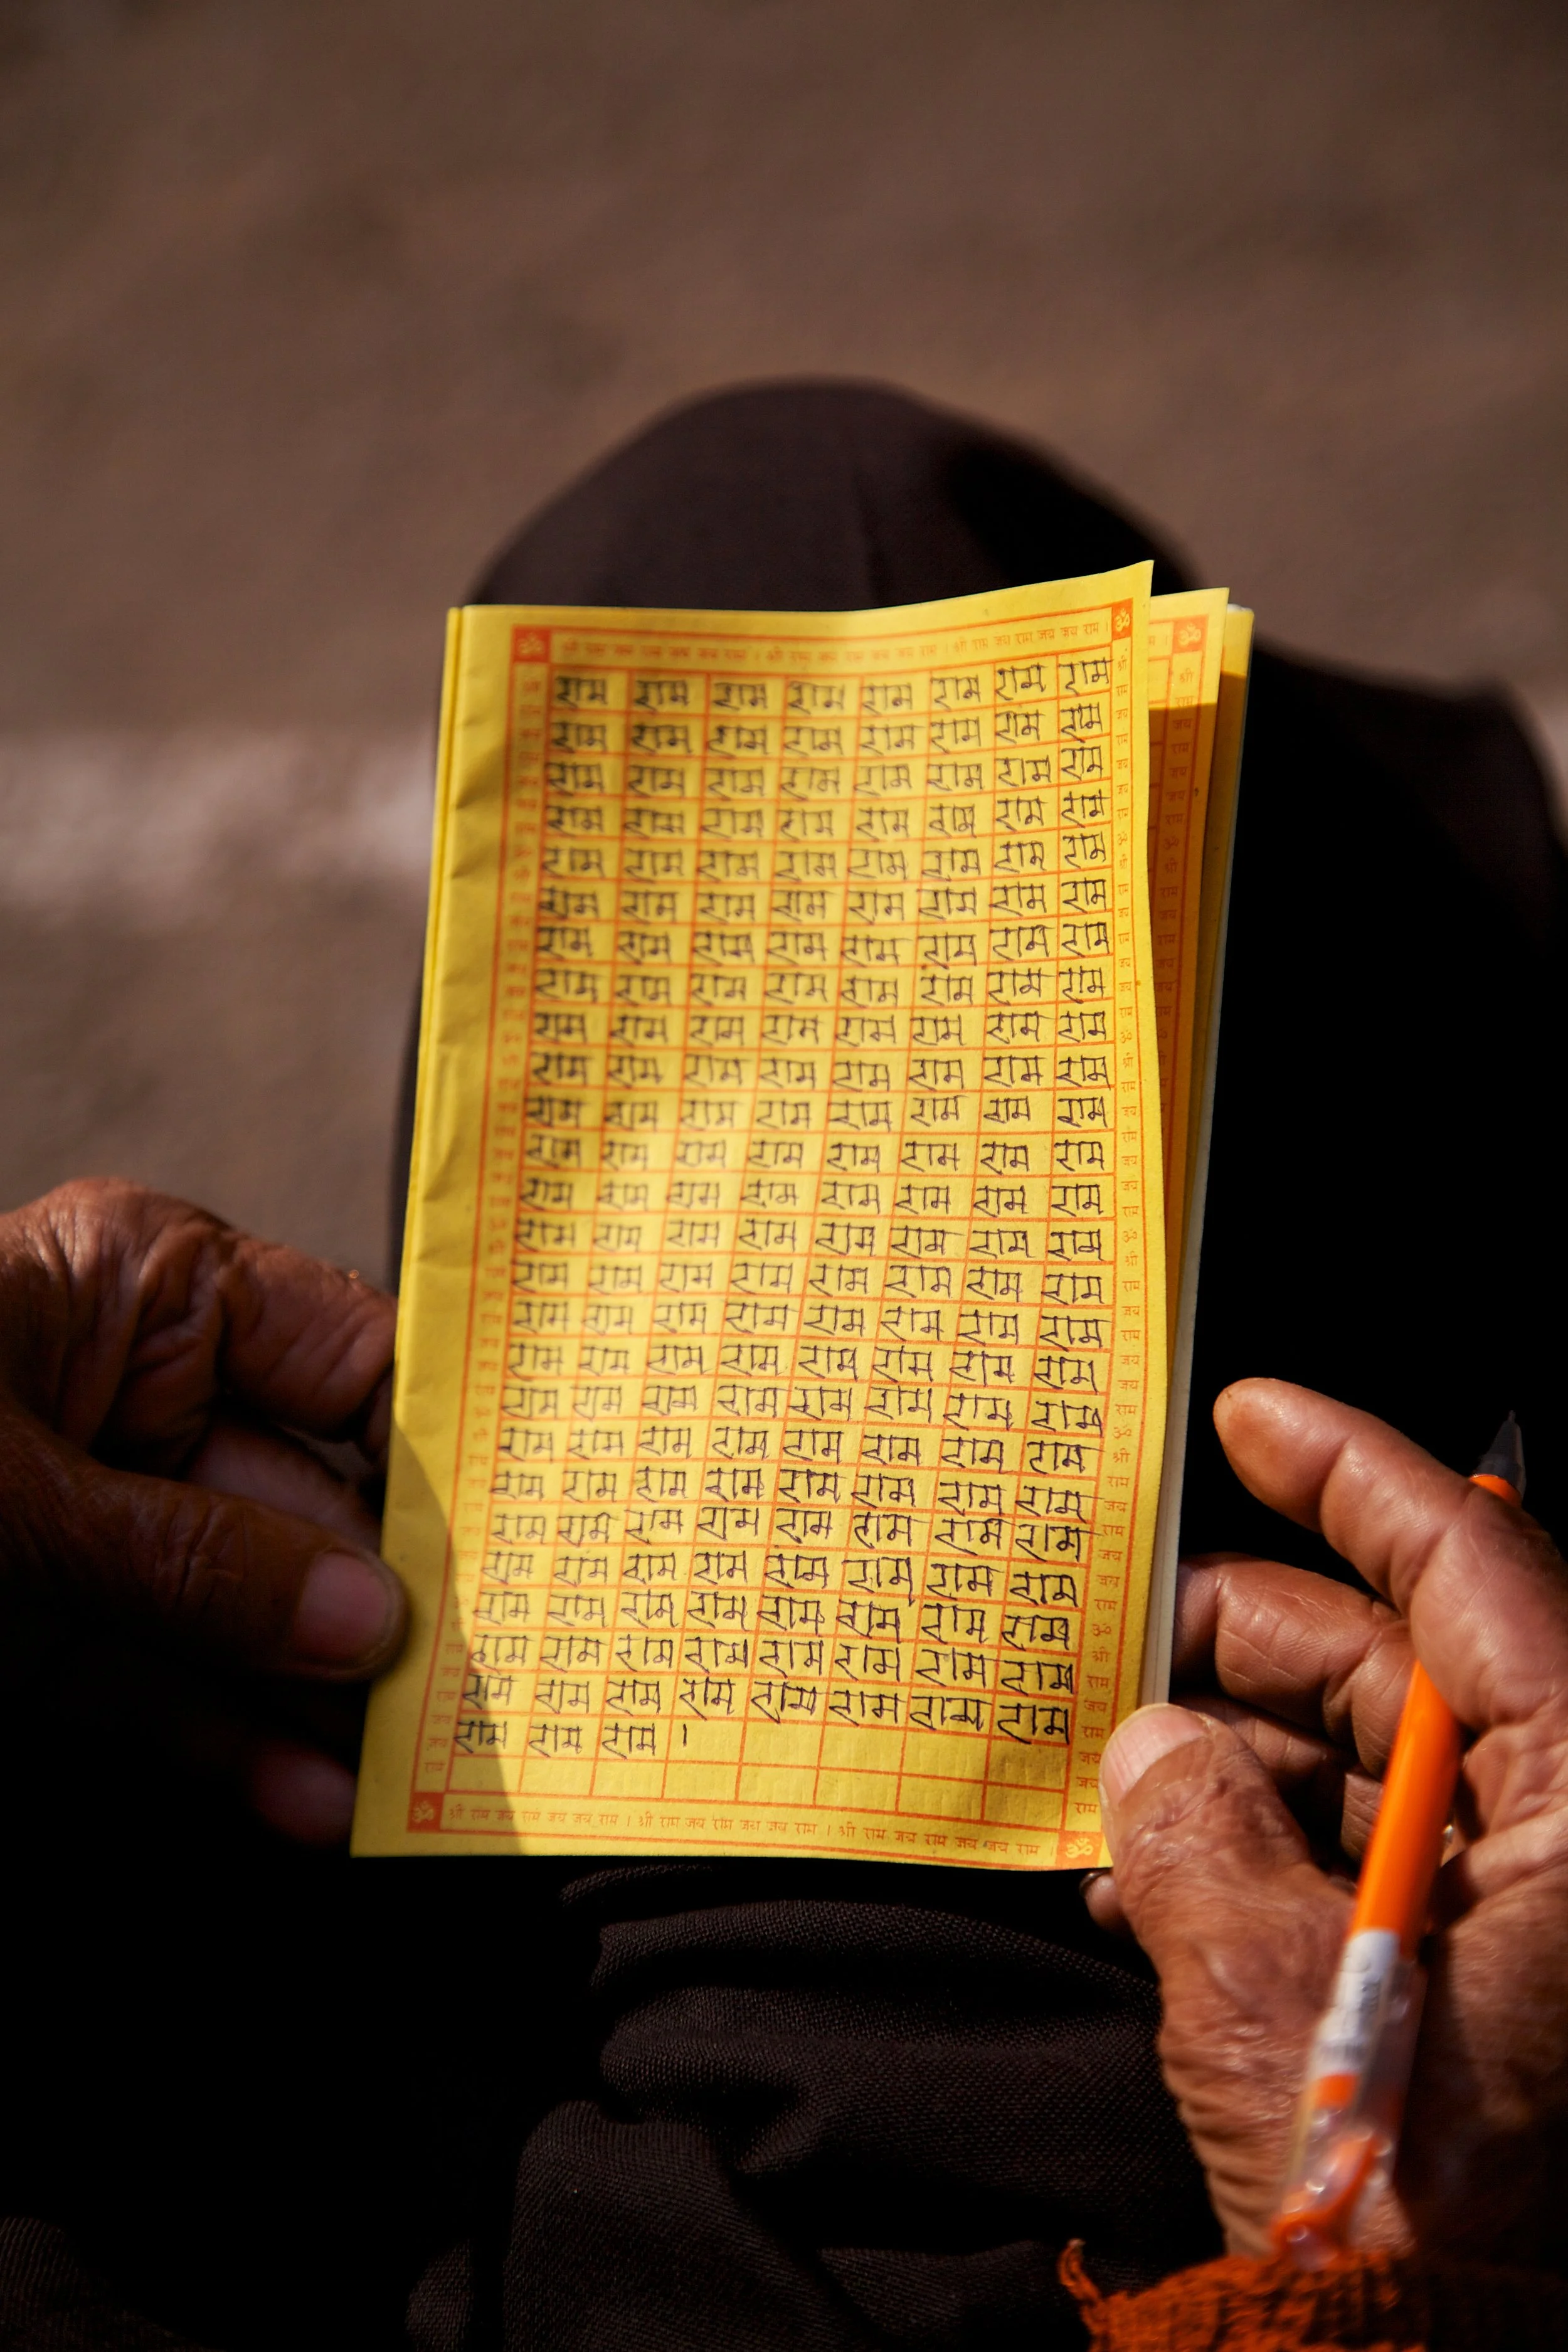 ॐ श्री राम जय राम जय जय राम । श्री राम जय राम जय जय राम । श्री राम जय राम जय जय राम । ॐ
राम राम राम राम राम राम राम राम
राम राम राम राम राम राम राम राम
राम राम राम राम राम राम राम राम
राम राम राम राम राम राम राम राम
राम राम राम राम राम राम राम राम
राम राम राम राम राम राम राम राम
राम राम राम राम राम राम राम राम
राम राम राम राम राम राम राम राम
राम राम राम राम राम राम राम राम
राम राम राम राम राम राम राम राम
राम राम राम राम राम राम राम राम
राम राम राम राम राम राम राम राम
राम राम राम राम राम राम राम राम
राम राम राम राम राम राम राम राम
राम राम राम राम राम राम राम राम
राम राम राम राम राम राम राम राम
राम राम राम राम राम राम राम राम
राम राम राम राम राम राम राम राम
राम राम राम राम राम राम राम राम
राम राम राम राम राम राम राम राम
राम राम राम राम राम राम राम राम
राम राम राम राम राम राम राम राम
राम राम राम राम राम राम राम राम
राम राम राम राम राम राम राम राम
राम राम राम राम राम राम राम राम
राम राम राम ।
ॐ श्री राम जय राम जय जय राम । श्री राम जय राम जय जय राम । श्री राम जय राम जय जय राम । ॐ